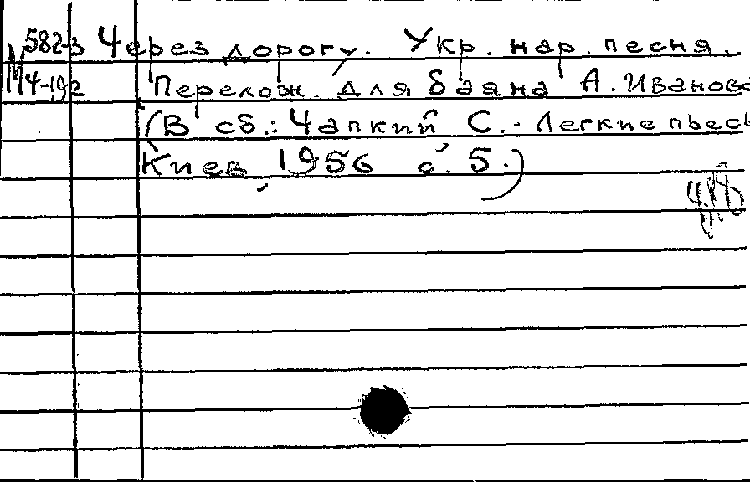 582-3 Через дорогу. Укр. нар. песня.
М4-192 Перелож. для баяна А. Иванова
(В сб.: Чапкий С. - Легкие пьесы
Киев, 1956 с. 5.)